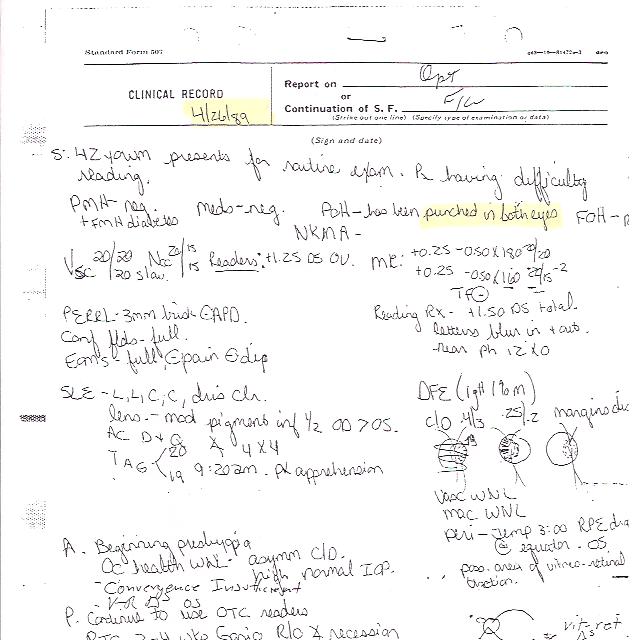 Standard Form 507
CLINICAL RECORD
4/26/89
Report on Opt
or
Continuation of S. F.
(Strike out one line) (Specify type of examination or data)
(Sign and date)
S: 42 yowm presents for routine exam. Pt having difficulty
reading.
PMH- neg. meds-neg. POH- has been punched in both eyes FOH-
+FMH diabetes NKMA-
Vsc 20/20 Ncc 20/15 Readers: +1.25 DS OU. MR: +0.25 -0.50 X 180 20/20
20 slow 15 +0.25 -0.50 X 160 20/15 -2
Reading Rx- +1.50 DS total.
PERRL- 3mm brisk APD. letters blur in + out.
Conf flds- full. -near ph 12 XO
Eoms- full, pain dip
SLE - L, L, C, C, iris clr. DFE (1gtt 1% m)
lens - mod pigment inf 1/2 OD > OS. C/D .4/.3 .25/.2 margins
AC D + Q 4 X 4
TAG 20 19 9:20am. pt apprehension
Vasc WNL
mac WNL
peri- temp 3:00 RPE
@ equator. OS
poss. area of vitreo-retinal
traction.
A. Beginning presbyopia
Oc health WNL - asymm C/D.
high normal IOP.
- Convergence Insufficient
- V-R OS
P. Continue to use OTC readers
vit-ret
RTC Gonio R/O X recession